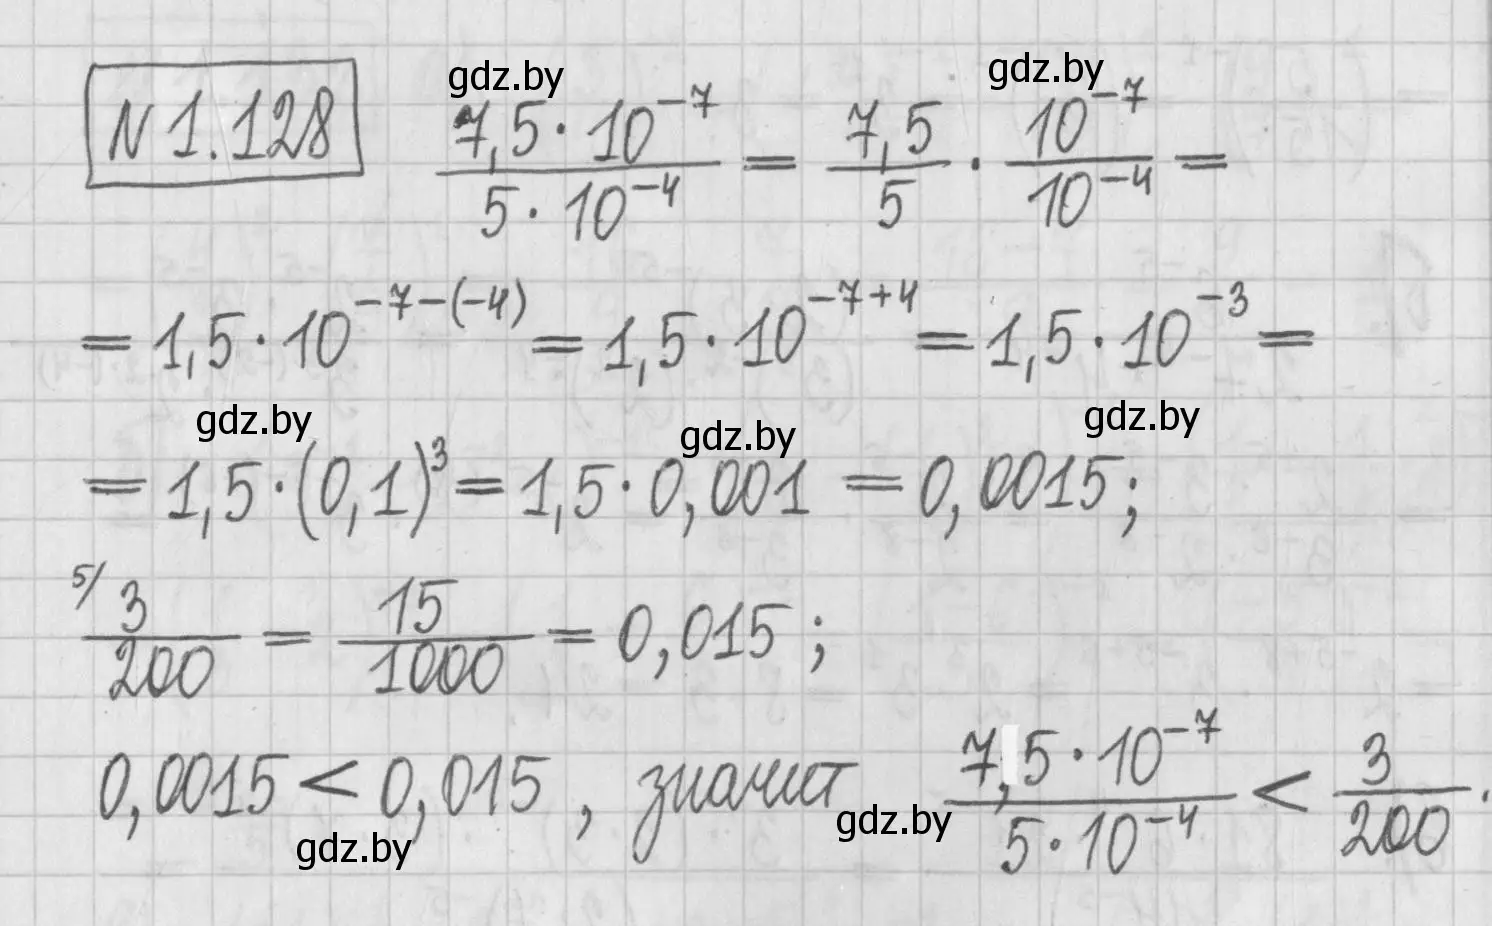 gdz.by gdz.by
N 1.128 7,5·10⁻⁷/5·10⁻⁴ = 7,5/5 · 10⁻⁷/10⁻⁴ =
= 1,5·10^(-7-(-4)) = 1,5·10^(-7+4) = 1,5·10⁻³ =
gdz.by gdz.by gdz.by
= 1,5·(0,1)³ = 1,5·0,001 = 0,0015;
5/ 3/200 = 15/1000 = 0,015;
0,0015 < 0,015, значит 7,5·10⁻⁷/5·10⁻⁴ < 3/200.
gdz.by gdz.by